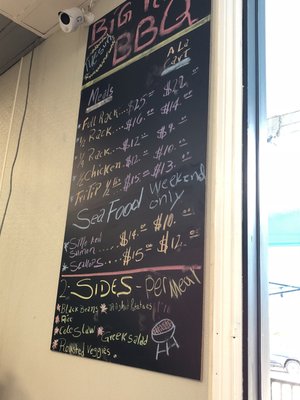 BIG
BBQ
A La
Cart
Meals
* Full Rack....$25.00 $22.00
* 1/2 Rack....$16.00 $14.00
Rack...$12.00 $9.00
Chicken $12.00 $10.00
* Tri Tip $15.00 $13.00
Sea Food Weekend
only
* $14.00 $10.00
* Scallops $15.00 $12.00
2 SIDES - per Meal
* Black Beans * Mashed Potatoes
* Rice
* Cole Slaw * Greek Salad
* Roasted Veggies.